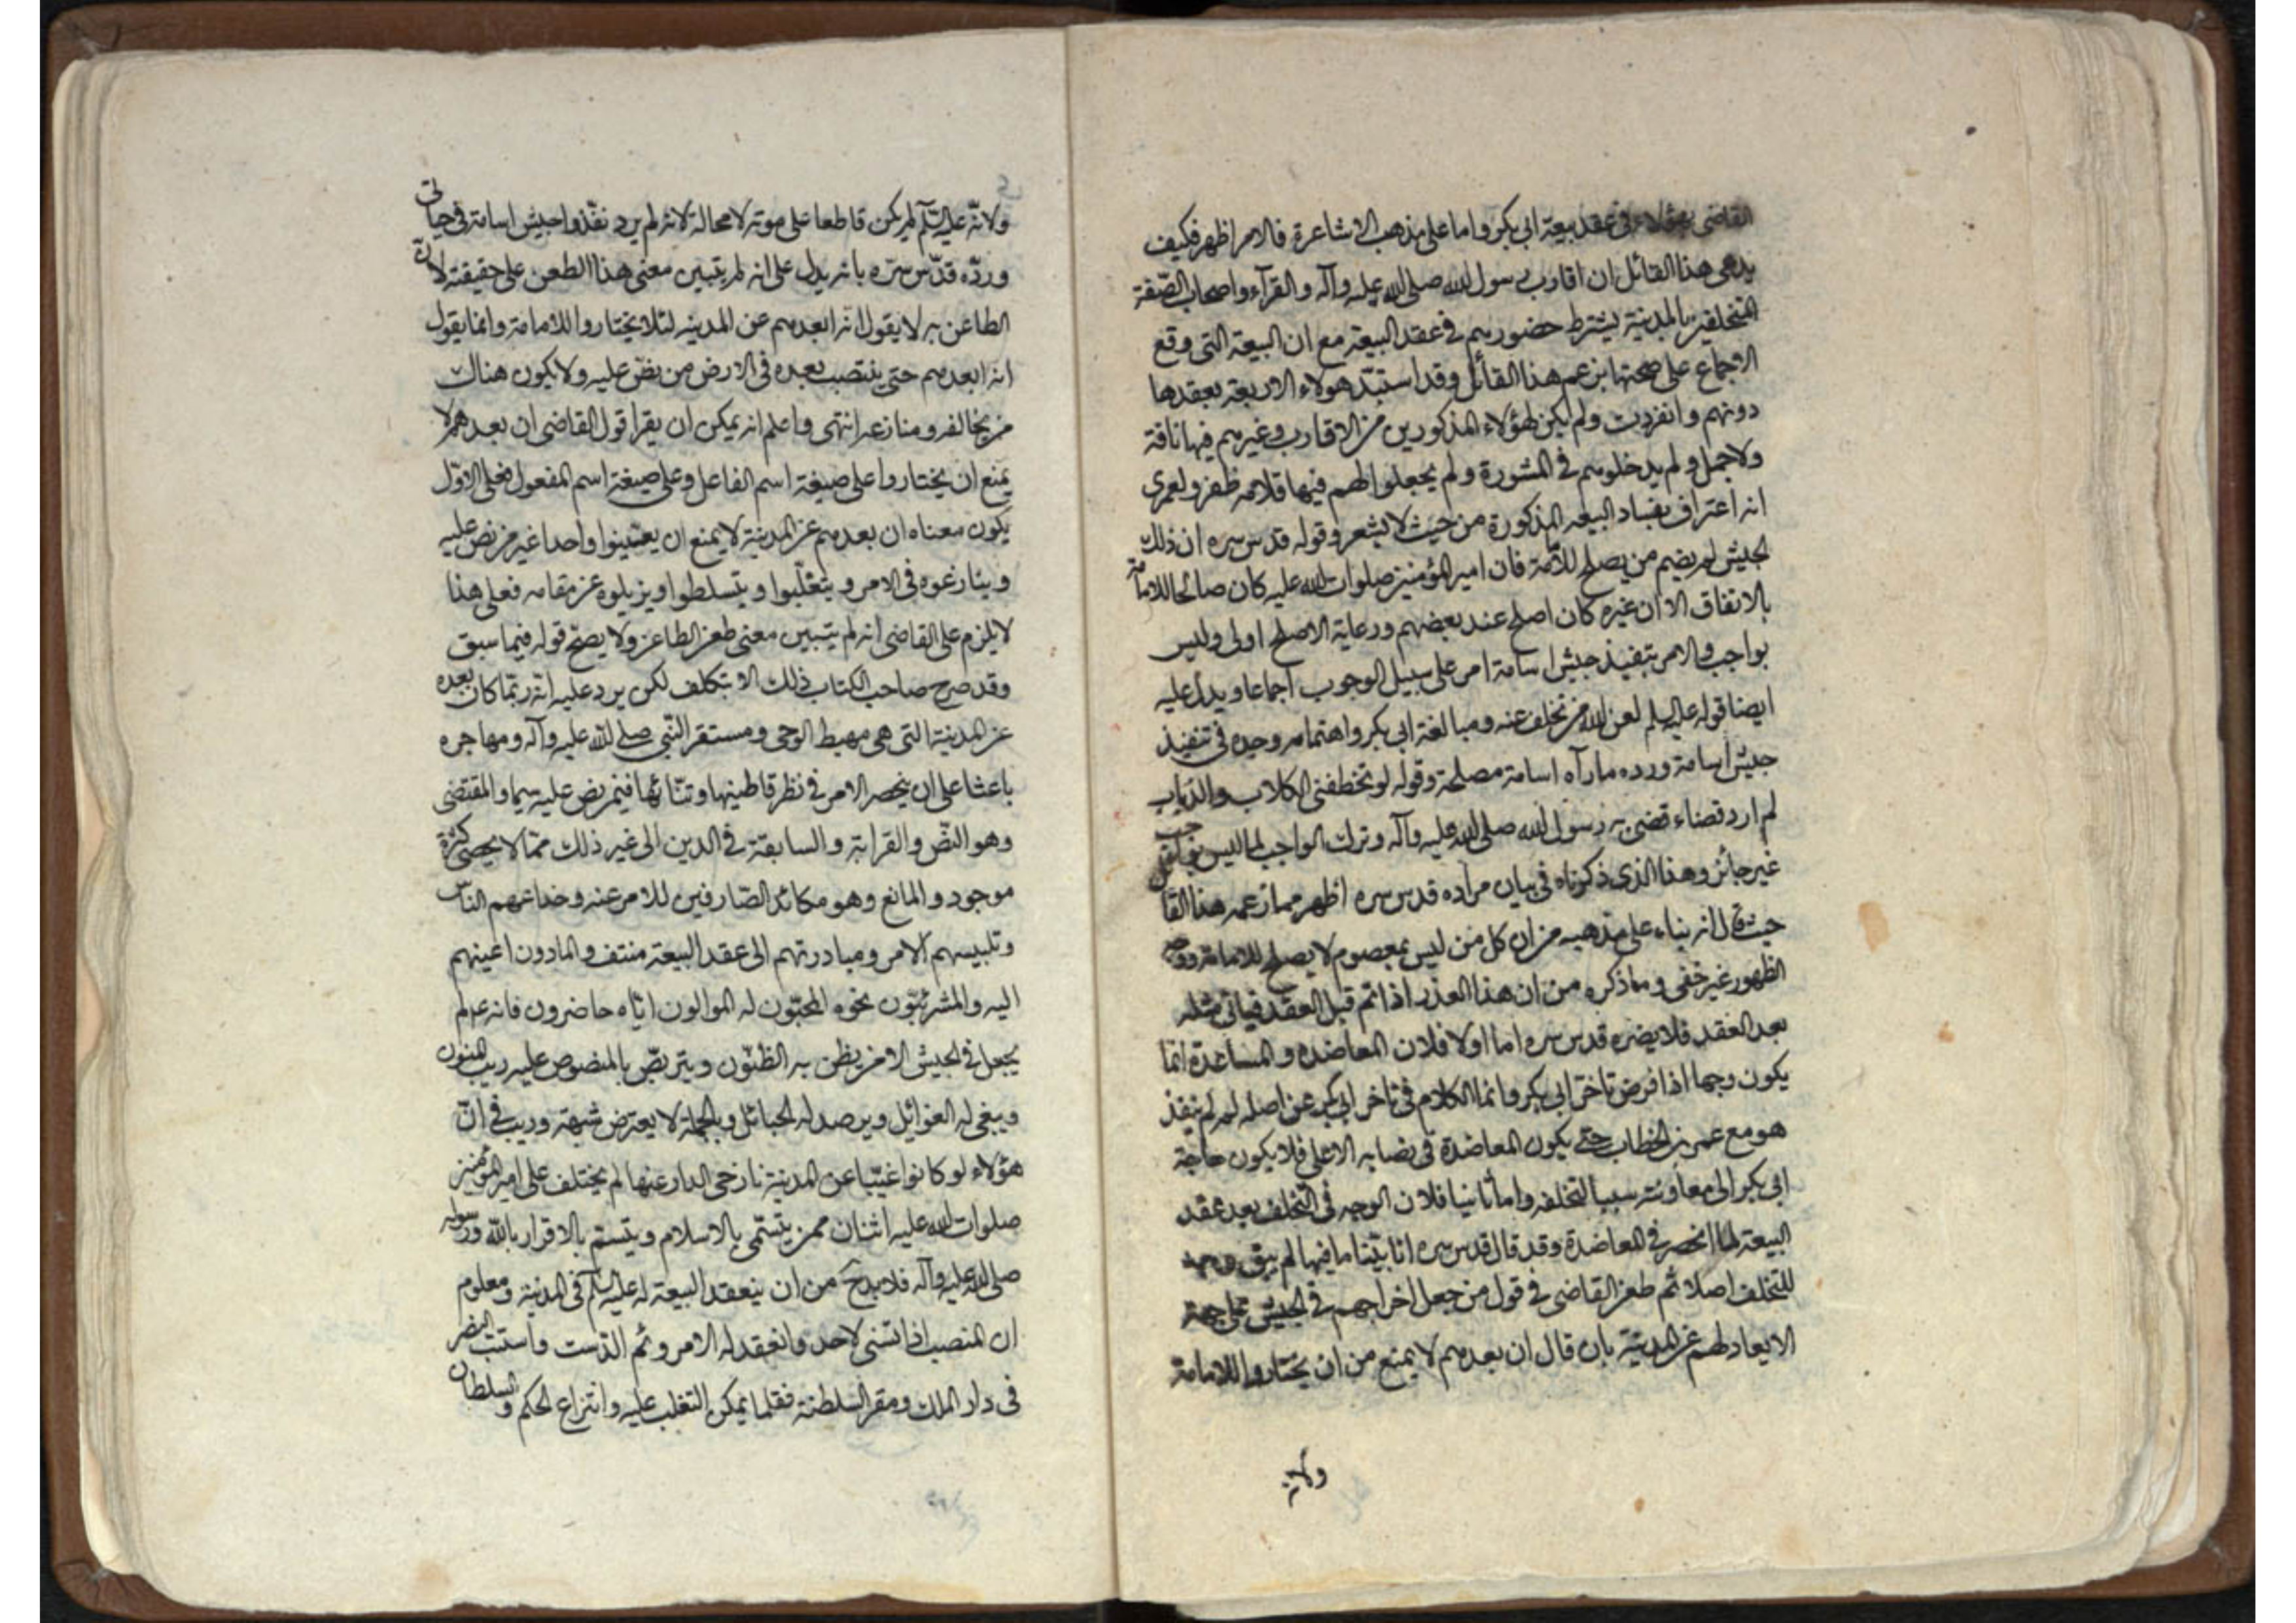 القاضى بهؤلاء فى عقد بيعة ابى بكر واما على مذهب الاشاعرة فالامر اظهر فكيف
يدعى هذا القائل ان اقارب رسول الله صلى الله عليه وآله والقرآء واصحاب الصّفة
المتخلفين بالمدينة يشترط حضورهم فى عقد البيعة مع ان البيعة التى وقع
الاجماع على صحتها بزعم هذا القائل وقد استبدّ هولاء الاربعة بعقدها
دونهم وانفردت ولم يكن لهؤلاء المذكورين من الاقارب وغيرهم فيها ناقة
ولا جمل ولم يدخلوهم فى المشورة ولم يجعلوا لهم فيها قلامه ظفر ولعمرى
انه اعتراف بفساد البيعه المذكورة من حيث لا يشعر وقوله قدس سره ان ذلك
الجيش لم يضم من يصلح للامّة فان امير المؤمنين صلوات الله عليه كان صالحا للامامة
بالاتفاق الا ان غيره كان اصلح عند بعضهم ورعاية الاصلح اولى وليس
بواجب والامر بتنفيذ جيش اسامة امر على سبيل الوجوب اجماعا ويدل عليه
ايضا قوله عليه السلم لعن الله من تخلف عنه ومبالغة ابى بكر واهتمامه وحده فى تنفيذ
جيش اسامة ورده ما رآه اسامة مصلحة وقوله لو تخطفنى الكلاب والذياب
لم ارد قضاء قضى به رسول الله صلى الله عليه وآله وترك الواجب لما ليس بواجب
غير جائز وهذا الذى ذكرناه فى بيان مراده قدس سره اظهر مما زعمه هذا القائل
حيث قال انه بناء على مذهبه من ان كل من ليس بمعصوم لا يصلح للامامة ووجه
الظهور غير خفى وما ذكره من ان هذا العذر اذا تم قبل العقد فياتى مثله
بعد العقد فلا يضره قدس سره اما اولا فلان المعاضده والمساعدة انما
يكون وجها اذا فرض تاخر ابى بكر وانما الكلام فى تاخر ابى بكر عن اصله لم لم ينفذ
هو مع عمر بن الخطاب حتى يكون المعاضدة فى نصابه الاعلى فلا يكون حاجة
ابى بكر الى معاونته سببا لتخلفه واما ثانيا فلان الوجه فى التخلف بعد عقد
البيعة لما انحصر فى المعاضدة وقد قال قدس سره انا بيّنا ما فيها لم يبق وجه
للتخلف اصلا ثم طعن القاضى فى قول من جعل اخراجهم فى الجيش على جهة
الابعاد لهم عن المدينة بان قال ان بعدهم لا يمنع من ان يختاروا للامامة
ولانه
ولانّه عليه السّلم لم يكن قاطعا على موته لا محالة لانه لم يرد نفّذوا جيش اسامة فى حياتى
وردّه قدّس سرّه بانه يدل على انه لم يتبين معنى هذا الطعن على حقيقته لان
الطاعن به لا يقول انه ابعدهم عن المدينه لئلا يختاروا للامامة وانما يقول
انه ابعدهم حتى ينتصب بعده فى الارض من نصّ عليه ولا يكون هناك
من يخالفه ومنازعه انتهى واعلم انه يمكن ان يقرا قول القاضى ان بعدهم لا
يمنع ان يختاروا على صيغة اسم الفاعل وعلى صيغة اسم المفعول فعلى الاوّل
يكون معناه ان بعدهم عن المدينة لا يمنع ان يعيّنوا واحدا غير من نص عليه
وينازعوه فى الامر ويتغلّبوا ويتسلطوا ويزيلوه عن مقامه فعلى هذا
لا يلزم على القاضى انه لم يتبين معنى طعن الطاعن ولا يصح قوله فيما سبق
وقد صرح صاحب الكتاب بذلك الا بتكلف لكن يرد عليه انّه ربّما كان بعده
عن المدينة التى هى مهبط الوحى ومستقر النّبى صلى الله عليه وآله ومهاجره
باعثا على ان ينحصر الامر فى نظر قاطنيها وتنّائها فيمن نص عليه سيما والمقتضى
وهو النّص والقرابة والسابقة فى الدين الى غير ذلك ممّا لا يحصى كثرة
موجود والمانع وهو مكائد الصّارفين للامر عنه وخداعهم الناس
وتلبيسهم الامر ومبادرتهم الى عقد البيعة منتف والمادون اعينهم
اليه والمشرئبّون نحوه المحبّون له الموالون ايّاه حاضرون فانه عم لم
يجعل فى الجيش الا من يظن به الظنّون ويتربّص بالمنصوص عليه ريب المنون
ويبغى له الغوائل ويرصد له الحبائل وبالجملة لا يعترض شبهة وريب فى انّ
هؤلاء لو كانوا غيّبا عن المدينة نازحى الدار عنها لم يختلف على امير المؤمنين
صلوات الله عليه اثنان ممن يتسّمى بالاسلام ويتسم بالاقرار بالله ورسوله
صلى الله عليه وآله فلا بدح من ان ينعقد البيعة له عليه السلم فى المدينة ومعلوم
ان المنصب اذا تسنى لاحد وانعقد له الامر وتم الدست واستتب
فى دار الملك ومقر السلطنة فقلما يمكن التغلب عليه وانتزاع الحكم والسلطان